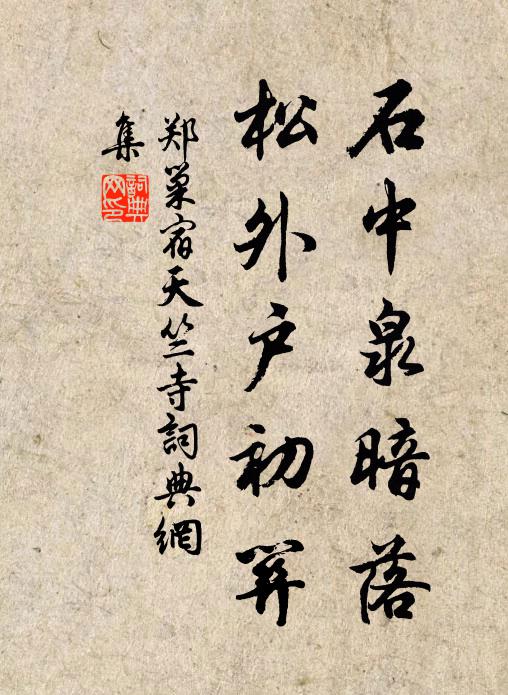 石中泉暗落
松外户初開
郑巢宿天竺寺詞典網
集
詞典
网印